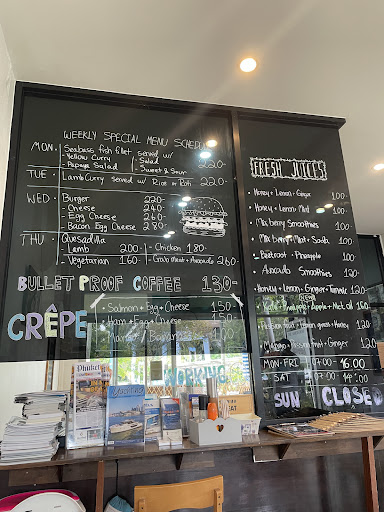 WEEKLY SPECIAL MENU SCHEDULE
MON. Seabass fish fillet served w/
- Yellow Curry - Salad
- Papaya Salad - Sweet & Sour 220-
TUE • Lamb Curry served w/ Rice or Roti 220-
WED • Burger 220-
- Cheese 240-
- Egg Cheese 260-
- Bacon Egg Cheese 280-
THU • Quesadilla
- Lamb 200- - Chicken 180-
- Vegetarian 160- - Crab Meat + Avocado 260-
BULLET PROOF COFFEE 130-
CRÊPE
- Salmon + Egg + Cheese 150-
- Ham + Egg + Cheese 150
WORKING
FRESH JUICES
• Honey + Lemon + Ginger 100-
• Honey + Lemon + Mint 100-
• Mix berry Smoothies 100-
• Mix berry + Mint + Soda 100
• Beetroot + Pineapple 100-
• Avocado Smoothies 120-
• Honey + Lemon + Ginger + Tumeric 120-
Kale + Pineapple + Apple + Nut Oil 160-
• Passion fruit + Lemon grass + Honey 120-
• Mango + Passion fruit + Ginger 120-
MON-FRI 07:00 - 16:00
SAT 07:00 - 14:00
SUN CLOSED
Phuket